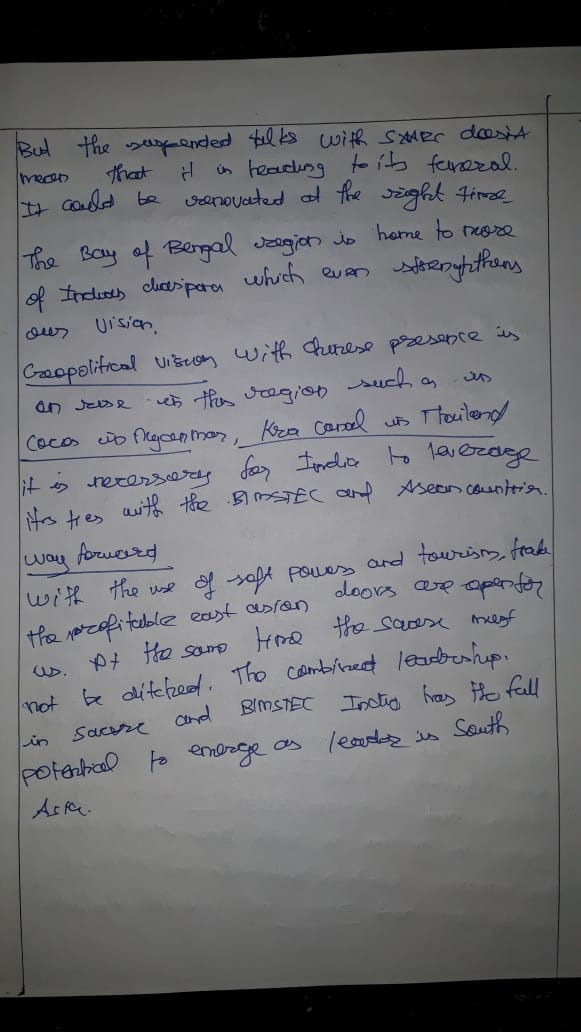 But the suspended talks with SAARC doesn't
mean that it is heading to its funeral.
It could be renovated at the right time
The Bay of Bengal region is home to more
of Indian diaspora which even strenghthens
our vision.
Geopolitical vision with Chinese presence is
on rise in this region such as in
Cocos in Myanmar, Kra Canal in Thailand
it is necessary for India to leverage
its ties with the BIMSTEC and Asean countries.
way forward
with the use of soft power and tourism, trade
the profitable east asian doors are open for
us. At the same time the Saarc must
not be ditched. The combined leadership.
in Saarc and BIMSTEC India has the full
potential to emerge as leader in South
Asia.